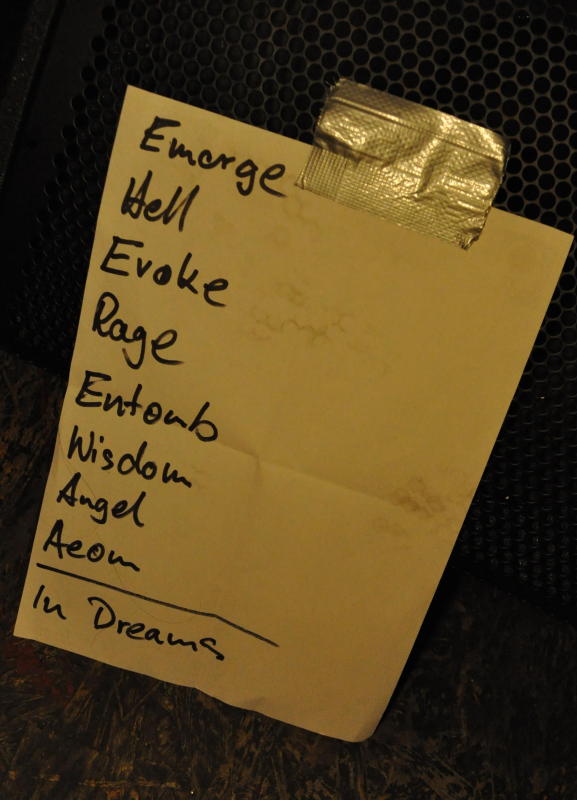 Emerge
Hell
Evoke
Rage
Entomb
Wisdom
Angel
Aeom
In Dreams